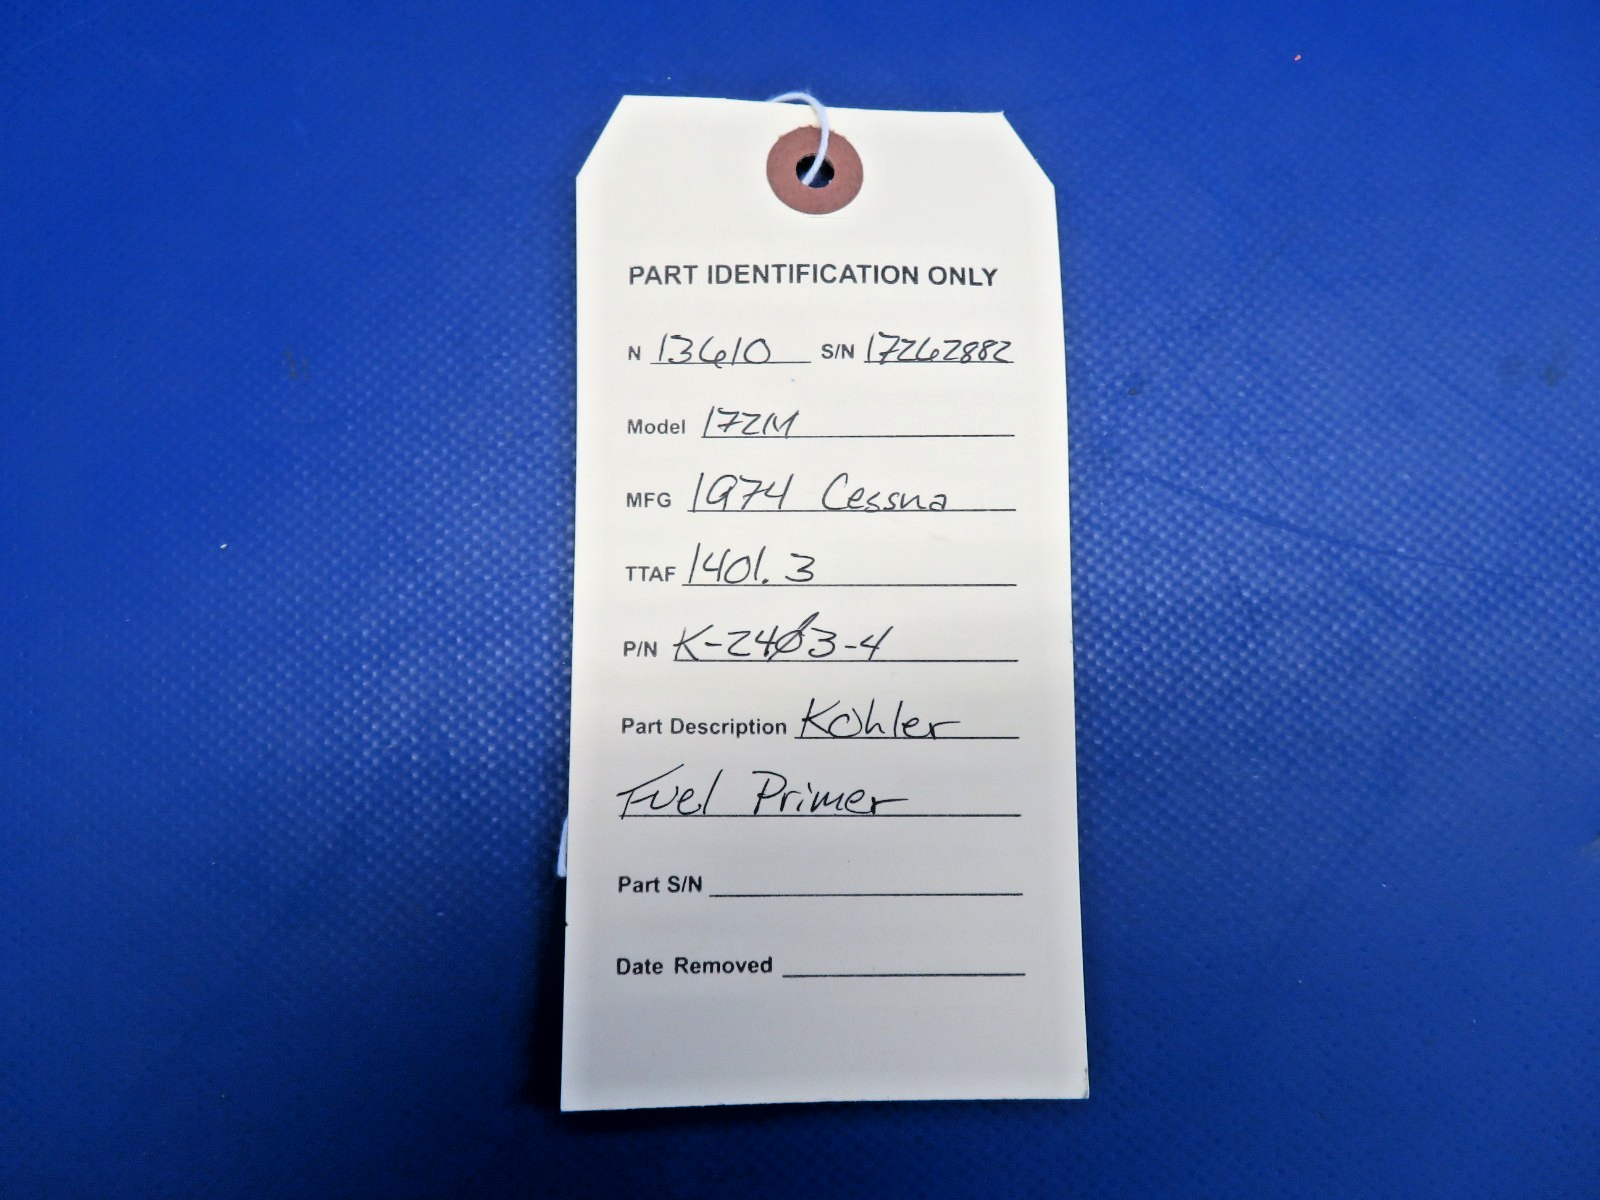 PART IDENTIFICATION ONLY
N 13610 S/N 17262882
Model 172M
MFG 1974 Cessna
TTAF 1401.3
P/N K-2403-4
Part Description Kohler
Fuel Primer
Part S/N
Date Removed